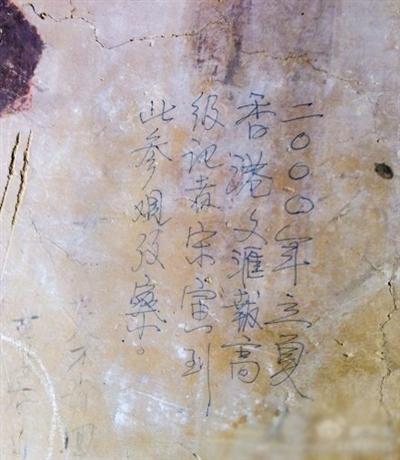 二〇〇〇年立夏
香港文匯報高
级记者宋寅到
此参观攷察。